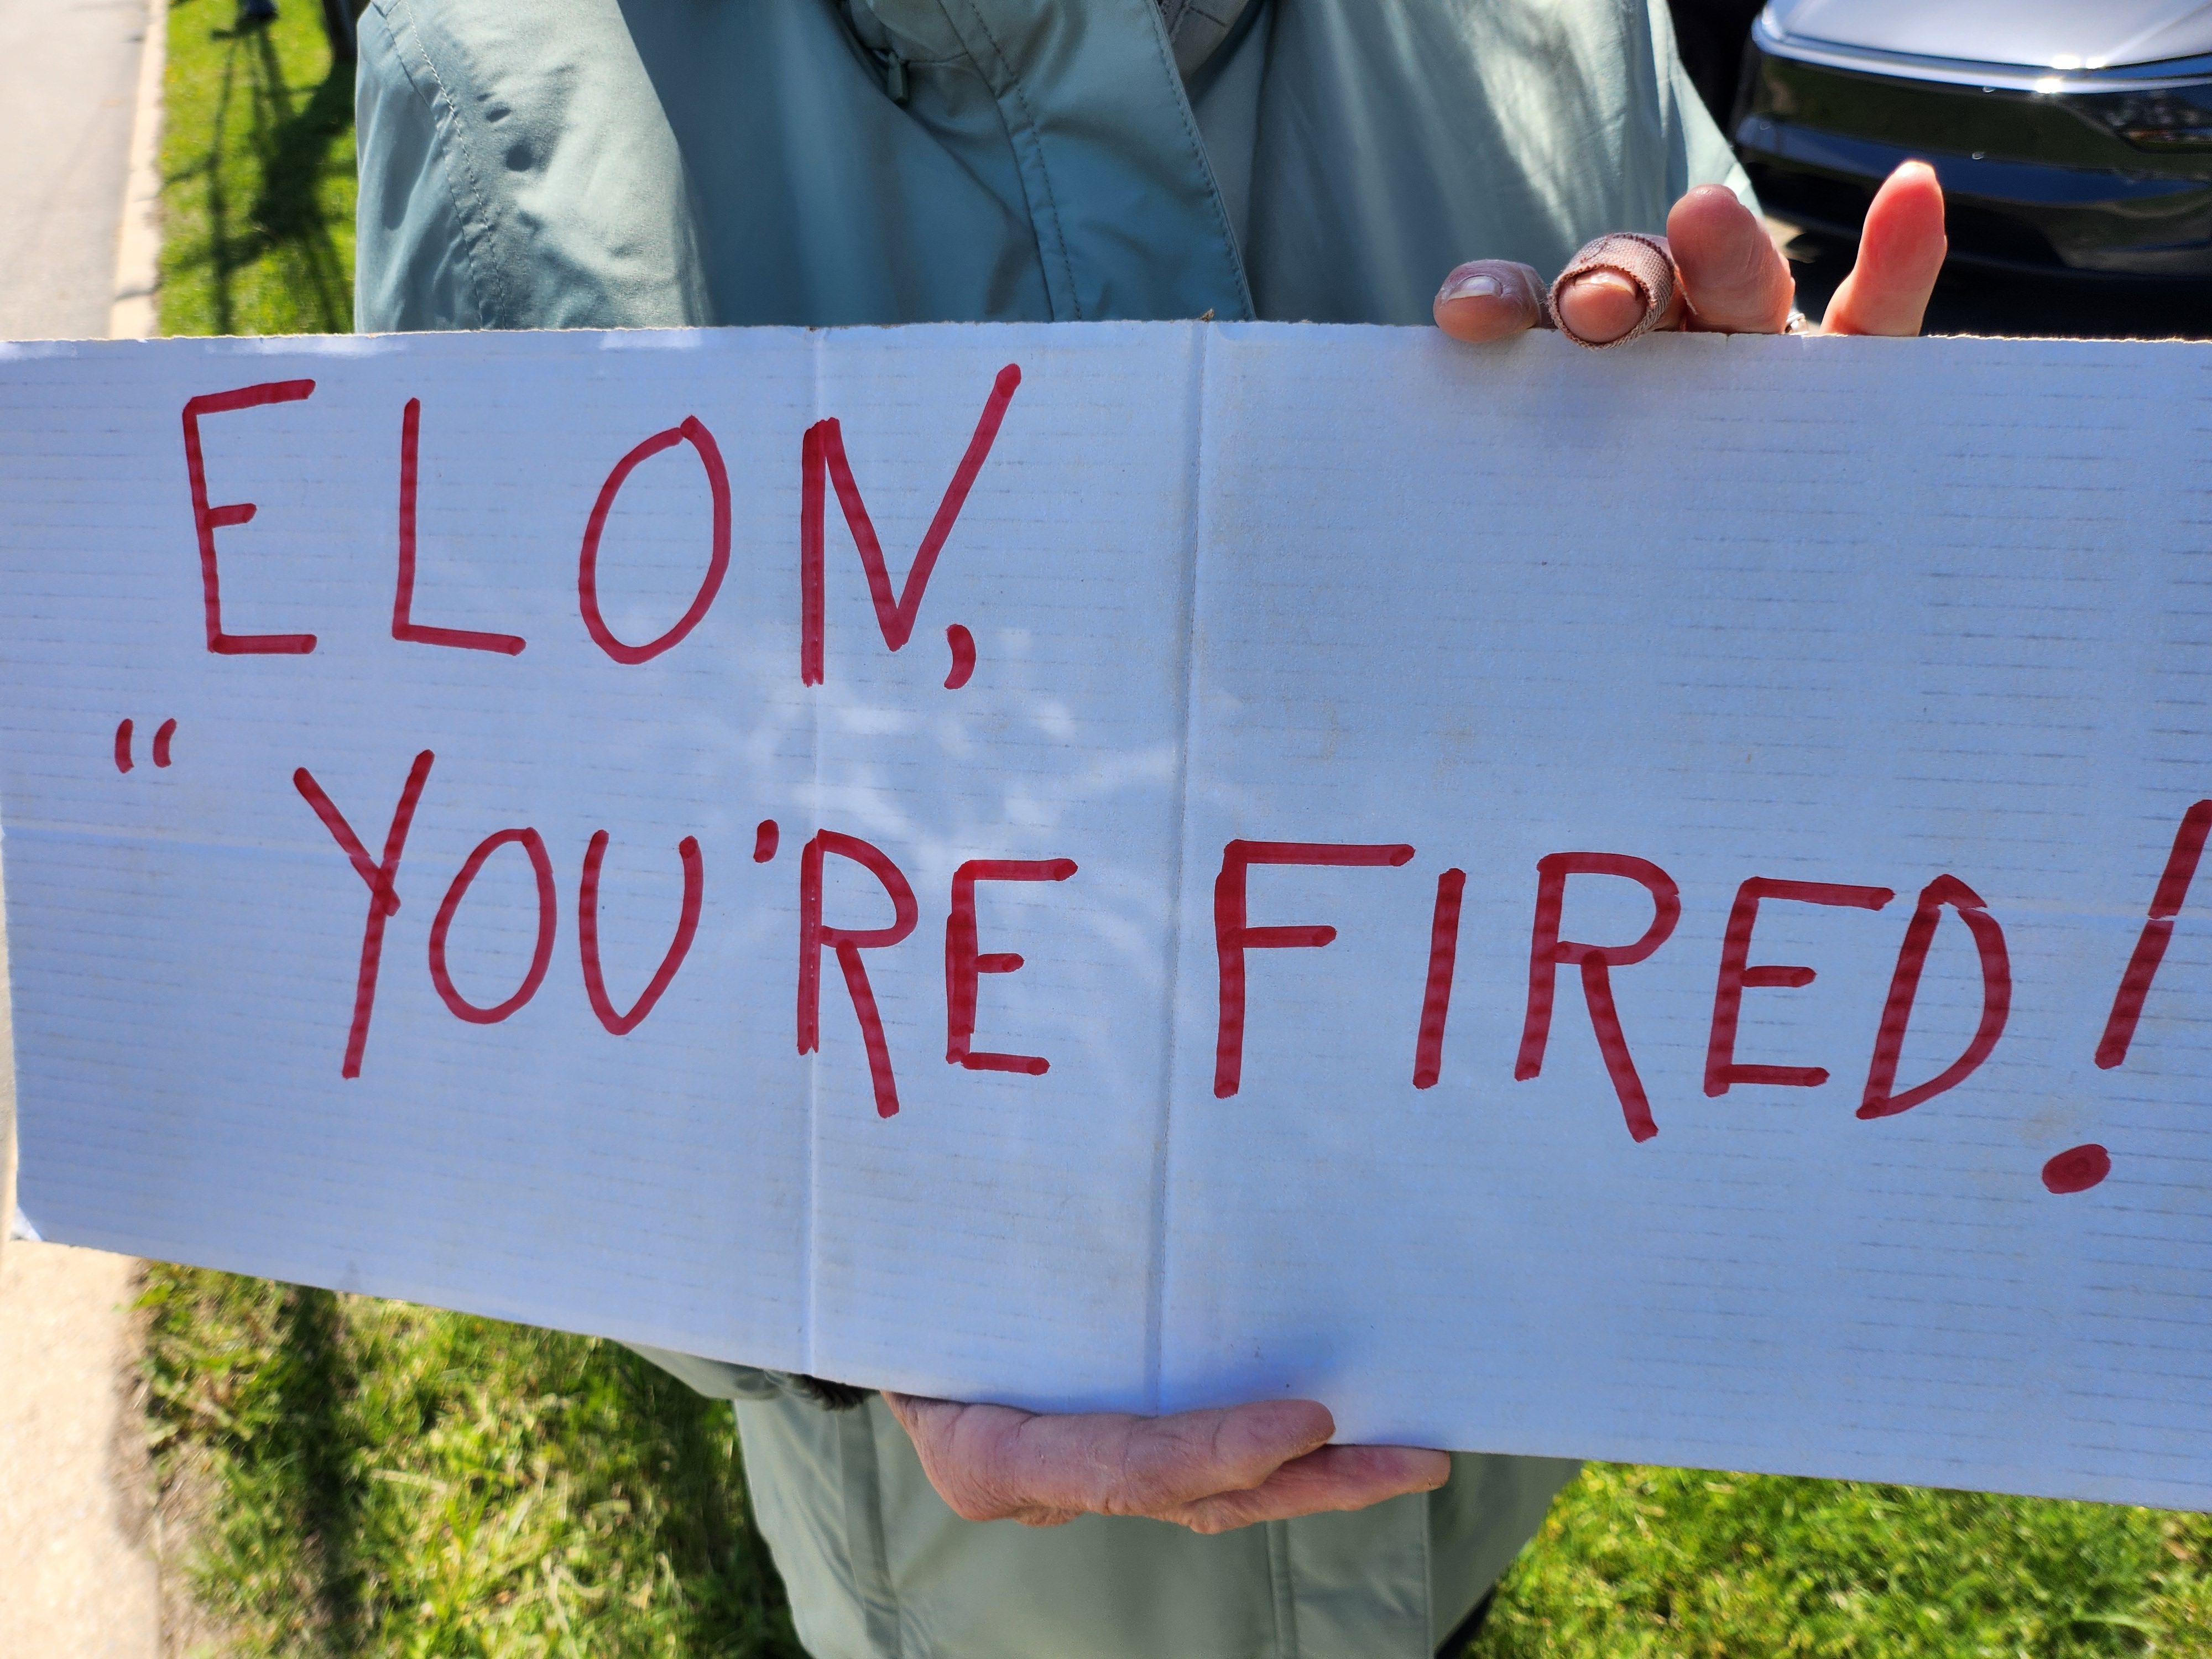 ELON,
"YOU'RE FIRED!